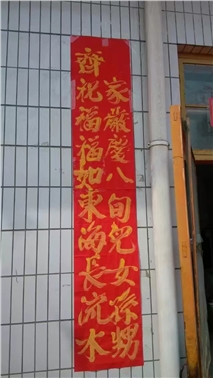 家嚴慶八旬兒女孫甥
齊祝福福如東海長流水